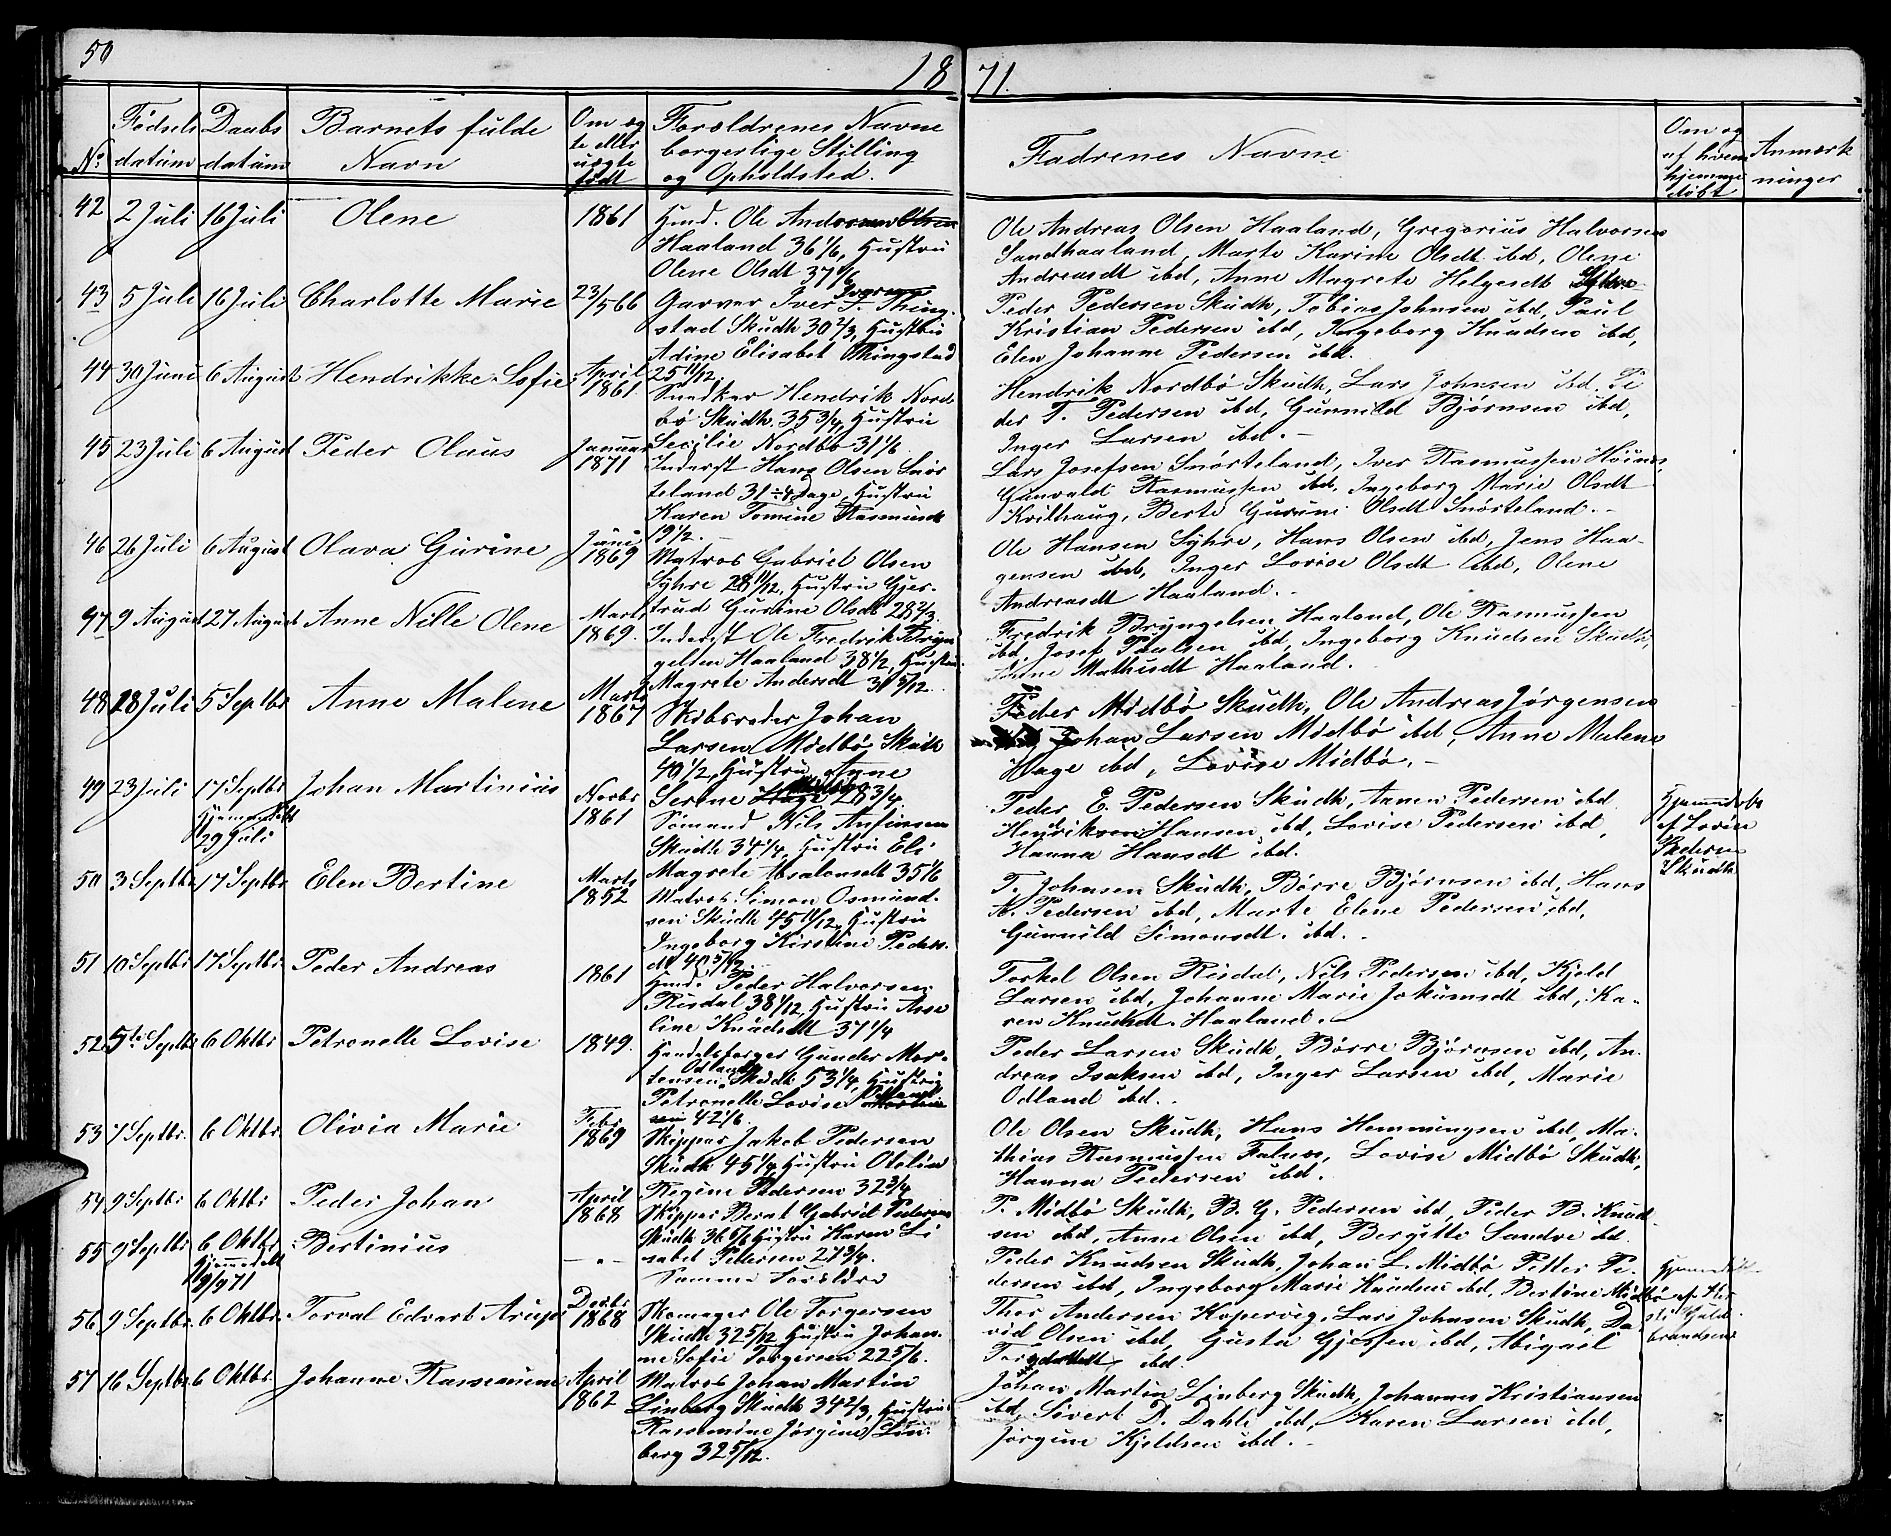 50
18
71.
No
Fødsels
datum
Daabs
datum
Barnets fulde
Navn
Om æg
te eller
uægte
født
Forældrenes Navne
borgerlige Stilling
og Opholdsted.
Fadrenes Navne
Om og
af hvem
hjemme
døbt
Anmærk
ninger
42 2 Juli 16 Juli Olene 1861
Hmd. Ole Andersen Olsen
Haaland 36 1/6, Hustru
Olene Olsdt 37 1/6
Ole Andreas Olsen Haaland, Gregorius Halvorsen
Sandhaaland, Marte Karine Olsdt ibd, Olene
Andreasdt ibd, Anne Magrete Helgesdt
43 5 Juli 16 Juli Charlotte Marie 23/5 66
Garver Iver T. Thing-
stad Skudh 30 2/3, Hustru
Adine Elisabet Thingstad
25 11/12.
Peder Pedersen Skudh, Tobias Johnsen ibd, Paul
Kristian Pedersen ibd, Ingeborg Knudsen ibd,
Elen Johanne Pedersen ibd.
44 30 Juni 6 August Hendrikke Sofie April 1861
Snedker Hendrik Nord-
bø Skudh 35 3/4, Hustru
Secilie Nordbø 31 1/6
Hendrik Nordbø Skudh, Lars Johnsen ibd, Pe
der T. Pedersen ibd, Gunnild Bjørnsen ibd,
Inger Larsen ibd. -
45 23 Juli 6 August Peder Olaus Januar 1871
Inderst Hans Olsen Snør
teland 31 ÷ 4 Dage, Hustru
Karen Tomine Rasmusdt
19 1/2. -
Lars Josefsen Snørteland, Iver Rasmussen
Gunvald Rasmussen ibd, Ingeborg Marie Olsdt
Krilhaug, Berte Gurine Olsdt Snørteland. -
46 26 Juli 6 August Olava Gurine Juni 1869
Matros Gabriel Olsen
Syhre 28 11/12, Hustru Gjer-
trud Gurine Olsdt 28 2/3
Ole Hansen Syhre, Hans Olsen ibd, Jens Haa-
gensen ibd, Inger Lovise Olsdt ibd, Olene
Andreasdt Haaland. -
47 9 August 27 August Anne Nille Olene Marts 1869.
Inderst Ole Fredrik Bryn
gelsen Haaland 38 1/2, Hustru
Magrete Andersdt 31 5/12.
Fredrik Bryngelsen Haaland, Ole Rasmussen
ibd, Josef Paulsen ibd, Ingeborg Knudsen Skudh,
Mathisdt Haaland. -
48 28 Juli 5 Septbr Anne Malene Marts 1867
Skibsreder Johan
Larsen Midbø, Skudh
40 1/2, Hustru Anne
Serine Hage 28 3/4.
Peder Midbø Skudh, Ole Andreas Jørgensen
Johan Larsen Midbø ibd, Anne Malene
Hage ibd, Lovise Midbø. -
49 23 Juli 17 Septbr Johan Martinius Novbr 1861
Hjemmedøbt
29 Juli
Sømand Nils Anfinsen
Skudh 34 1/4, Hustru Eli
Magrete Absalonsdt 35 1/6
Peder E. Pedersen Skudh, Pedersen ibd
Henrik Hansen ibd, Lovise Pedersen ibd,
Hanna Hansdt ibd.
Hjemmedøbt
af Lovise
Pedersen
Skudh
50 3 Septbr 17 Septbr Elen Bertine Marts 1852
Matros Simon Osmund-
sen Skudh 45 11/12, Hustru
Ingeborg Kirstine Peders-
dt 40 5/12
T. Johnsen Skudh, Børre Bjørnsen ibd, Hans
K. Pedersen ibd, Marte Elene Pedersen ibd,
Gunnild Simonsdt. ibd. -
51 10 Septbr 17 Septbr Peder Andreas 1861
Hmd. Peder Halvorsen
Risdal 38 1/12, Hustru Asse
line Knudsdt 37 1/4
Torkel Olsen Risdal, Nils Pedersen ibd, Kjeld
Larsen ibd, Johanne Marie Jokumsdt ibd, Ka-
ren Knudsdt Haaland.
52 5te Septbr 6 Oktbr Petronelle Lovise 1849.
Handelsborger Gunder Mor-
tensen Odland Skudh 53 1/4, Hustru
Petronelle Lovise Odland
42 1/6
Peder Larsen Skudh, Børre Bjørnsen ibd, An-
dreas Isaksen ibd, Inger Larsen ibd, Marie
Odland ibd. -
53 7 Septbr. 6 Oktbr. Olivia Marie Febr 1869
Skipper Jakob Pedersen
Skudh 45 1/4, Hustru Otelin
Regine Pedersen 32 3/4
Ole Olsen Skudh, Hans Hemmingsen ibd, Ma-
thias Rasmussen Falnes, Lovise Midbø Skudh,
Hanna Pedersen ibd.
54 9 Septbr 6 Oktbr Peder Johan April 1868
Skipper Bernt Gabriel Pedersen
Skudh 36 5/6 Hustru Karen Li
sabet Pedersen 27 3/4.
P. Midbø Skudh, B. G. Pedersen ibd, Peder B. Knud-
sen ibd, Anne Olsen ibd, Bergitte Sandve ibd.
55 9 Septbr 6 Oktbr Bertinius - " -
Hjemmedøbt
19/9 71
Samme Forældre
Peder Knudsen Skudh, Johan L. Midbø Petter Pe-
dersen ibd, Ingeborg Marie Knudsen ibd, Bertine Midbø
Hjemmedøbt
af Kir
sti Guld
brandsen
56 9 Septbr. 6 Oktbr. Torval Edvart Arup Decbr 1868
Skomager Ole Torgersen
Skudh 32 5/12 Hustru Johan-
ne Sofie Torgersen 22 5/6.
Thor Andersen Kopervig, Lars Johnsen Skudh, Da-
vid Olsen ibd, Gusta Gjersen ibd, Abigael
ibd.
57 16 Septbr 6 Oktbr. Johanne Rassemine April 1862
Matros Johan Martin
Linberg Skudh 34 2/3, Hustru
Rassemine Jørgine Lin-
berg 32 5/12.
Johan Martin Linberg Skudh, Johannes Kristiansen
ibd, Sivert D. Dahle ibd, Karen Larsen ibd,
Jørgine Kjeldsen ibd. -